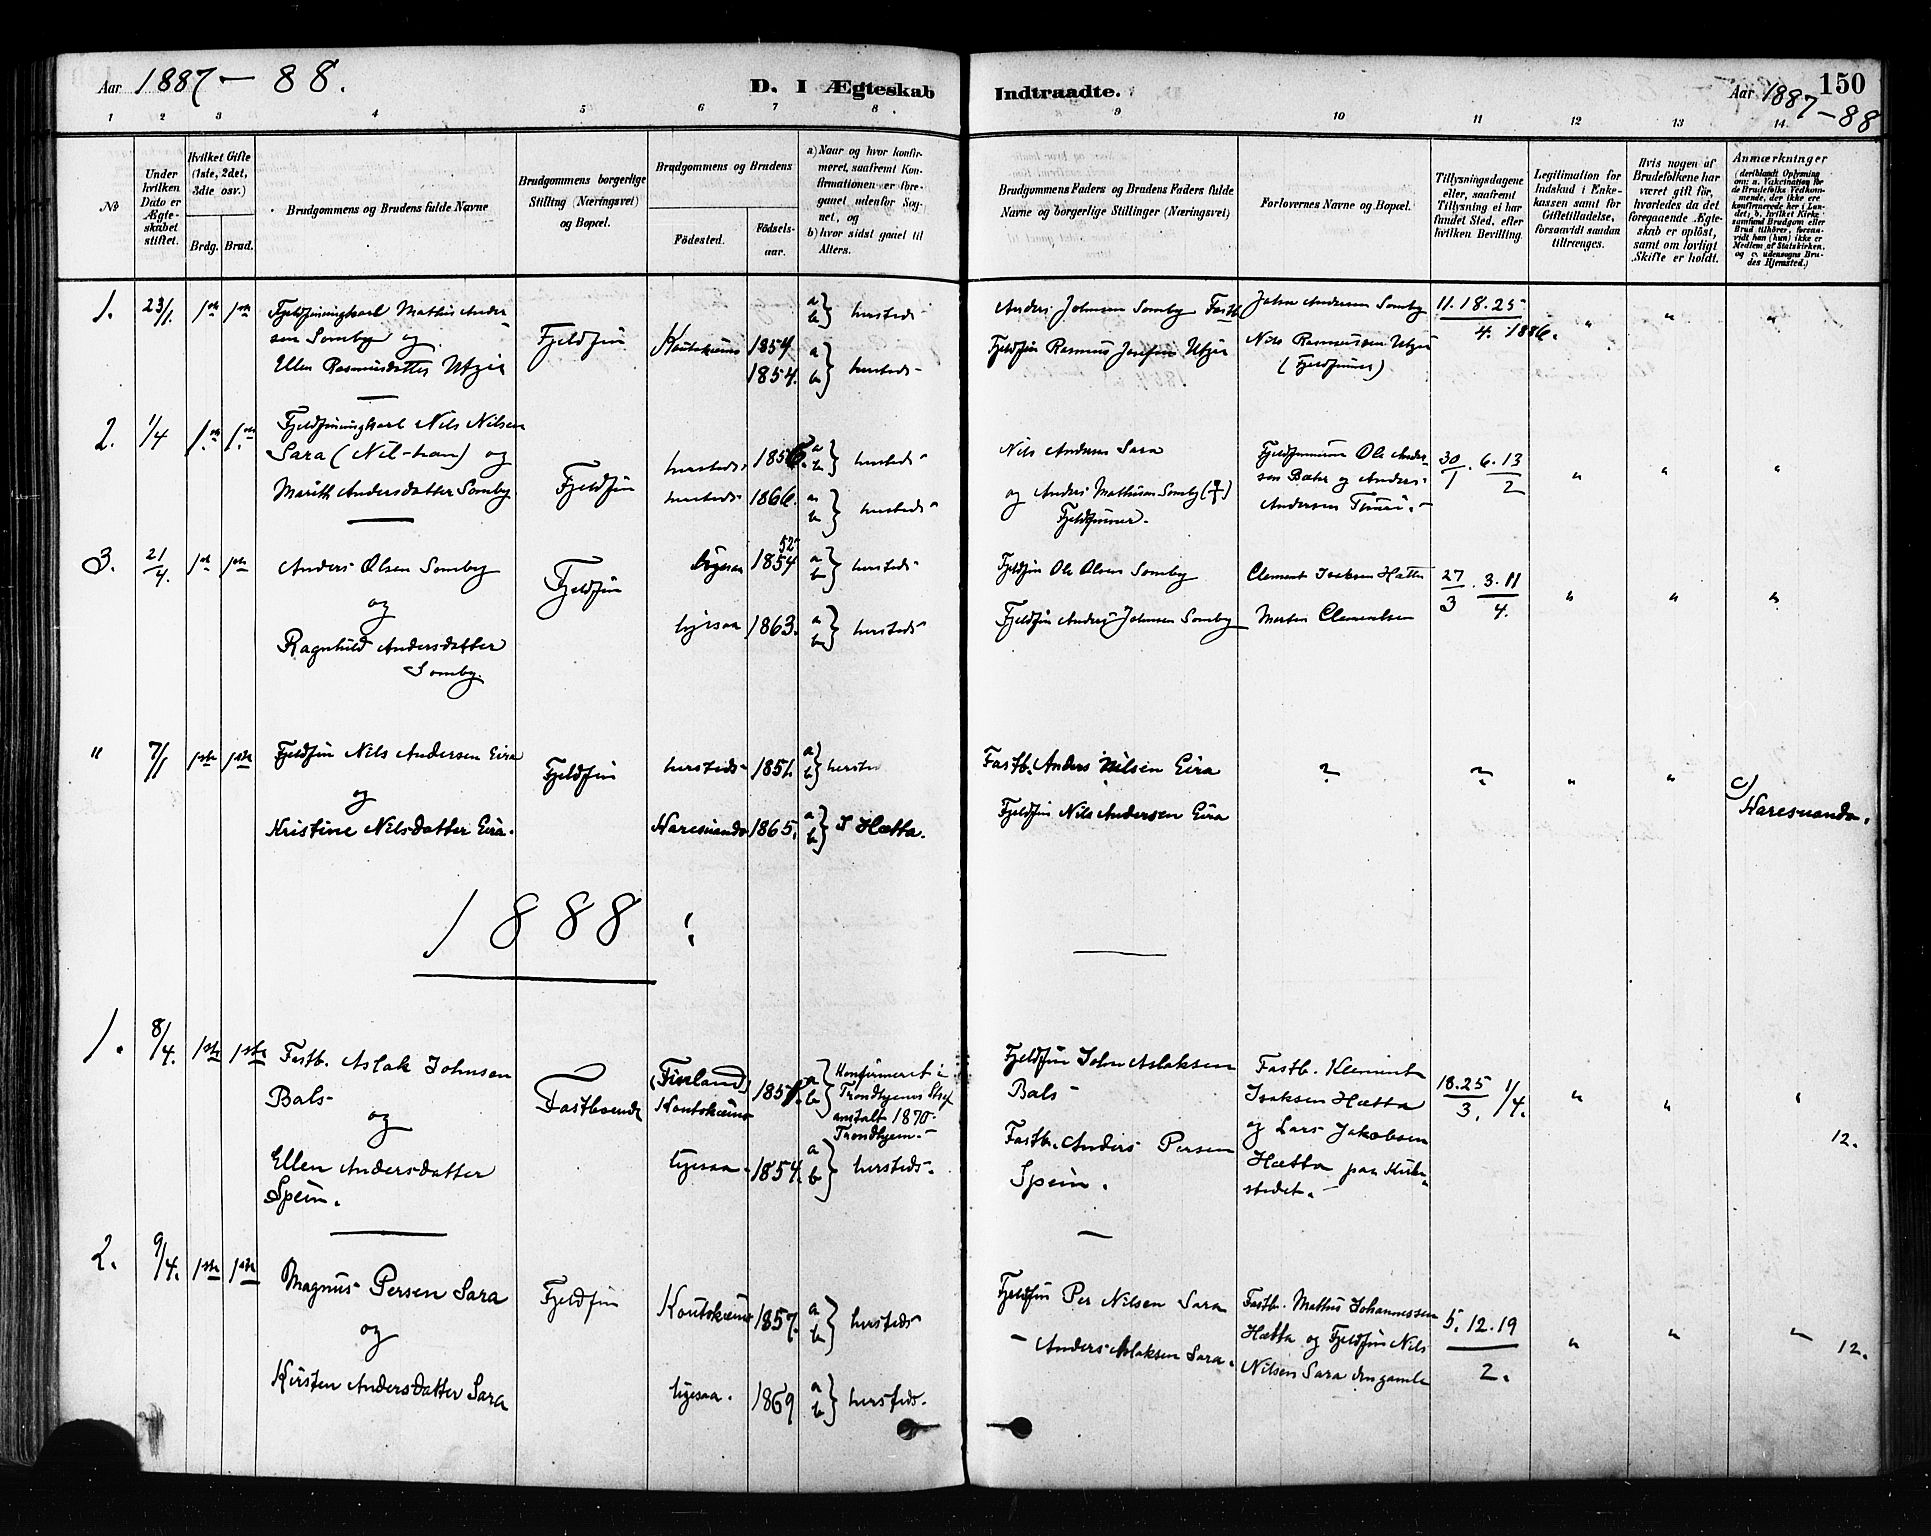 Aar 1887 - 88.
D. I Ægteskab
Indtraadte.
Aar 1887-88
150
1 2 3 4 5 6 7 8 9 10 11 12 13 14.
No
Under hvilken Dato er Ægteskabet stiftet.
Hvilket Gifte (1ste, 2det, 3die osv.)
Brdg. Brud.
Brudgommens og Brudens fulde Navne
Brudgommens borgerlige Stilling (Næringsvei) og Bopæl.
Brudgommens og Brudens
Födested.
Födselsaar.
a) Naar og hvor konfirmeret, saafremt Konfirmationen er foregaaet udenfor Sognet, og
b) hvor sidst gaaet til Alters.
Brudgommens Faders og Brudens Faders fulde Navne og borgerlige Stillinger (Næringsvei)
Forlovernes Navne og Bopæl.
Tillysningsdagene eller, saafremt Tillysning ei har fundet Sted, efter hvilken Bevilling.
Legitimation for Indskud i Enkekassen samt for Giftetilladelse, forsaavidt saadan tiltrænges.
Hvis nogen af Brudefolkene har været gift för, hvorledes da det foregaaende Ægteskab er oplöst, samt om lovligt Skifte er holdt.
Anmærkninger
(deriblandt Oplysning om: a. Vakcination for de Brudefolks Vedkommende, der ikke ere konfirmerede her i Landet; b. hvilket Kirkesamfund Brudgom eller Brud tilhörer, forsaavidt han (hun) ikke er Medlem af Statskirken, og c. udensogns Brudes Hjemsted.)
1. 23/1. 1ste 1ste
Mathis Andersen Somby og
Ellen Rasmusdatter Utzie
Fjeldfin
Koutokeino 1854
1854.
a b } hersteds
a b } hersteds
Anders Johnsen Somby Fastb.
Fjeldfin Rasmus Josefsen Utzie
John Andersen Somby
Nils Rasmussen Utzie
(Fjeldfinner)
11. 18. 25
4. 1886.
" " "
2. 1/4 1ste 1ste
Nils Nilsen
Sara (Nil-han) og
Marith Andersdatter Somby
Fjeldfin
hersteds 1856.
hersteds 1866.
a b } hersteds
a b } hersteds
Nils Andersen Sara
og Anders Mathisen Somby (†)
Fjeldfinner.
Fjeldfinnerne Ole Andersen Bæhr og Anders
Andersen
30/1. 6. 13/2
" " "
3. 21/4. 1ste 1ste
Anders Olsen Somby
og
Ragnhild Andersdatter
Somby.
Fjeldfin
ligesaa 1854 52
ligesaa 1863.
a b } hersteds
a b } hersteds
Fjeldfin Ole Olsen Somby
Fjeldfin Anders Johnsen Somby
Clement Isaksen Hætta
Morten Clementsen
27/3. 3. 11/4.
" " "
" 7/1 1ste 1ste
Fjeldfin Nils Andersen Eira
og
Kristine Nilsdatter Eira.
Fjeldfin
hersteds 1851.
Karesuando 1865.
a b } hersteds
a b } I Hætta.
Fastb. Anders Nilsen Eira
Fjeldfin Nils Andersen Eira
? ? " "
c) Karesuando.
1888.
1. 8/4. 1ste 1ste
Fastb. Aslak Johnsen
Bals
og
Ellen Andersdatter
Spein.
Fastboende
(Finland)
Koutokeino
ligesaa 1854.
a b } Konfirmeret i
Trondhjems
anstalt 1870
Trondhjem.
a b } hersteds.
Fjeldfin John Aslaksen
Bals
Fastb. Anders Persen
Spein.
Fastb. Klemment
Isaksen Hætta
og Lars Jakobsen
Hætta paa Kirkestedet.
18. 25/3. 1/4.
" " " 12.
2. 9/4. 1ste 1ste
Magnus Persen Sara
og
Kirsten Andersdatter Sara
Fjeldfin
Koutokeino 1857.
ligesaa. 1869
a b } hersteds
a b } hersteds.
Fjeldfin Per Nilsen Sara
- Anders Aslaksen Sara.
Fastb. Mathis Johannessen
Hætta og Fjeldfin Nils
Nilsen Sara den gamle
5. 12. 19
2.
" " " 12.